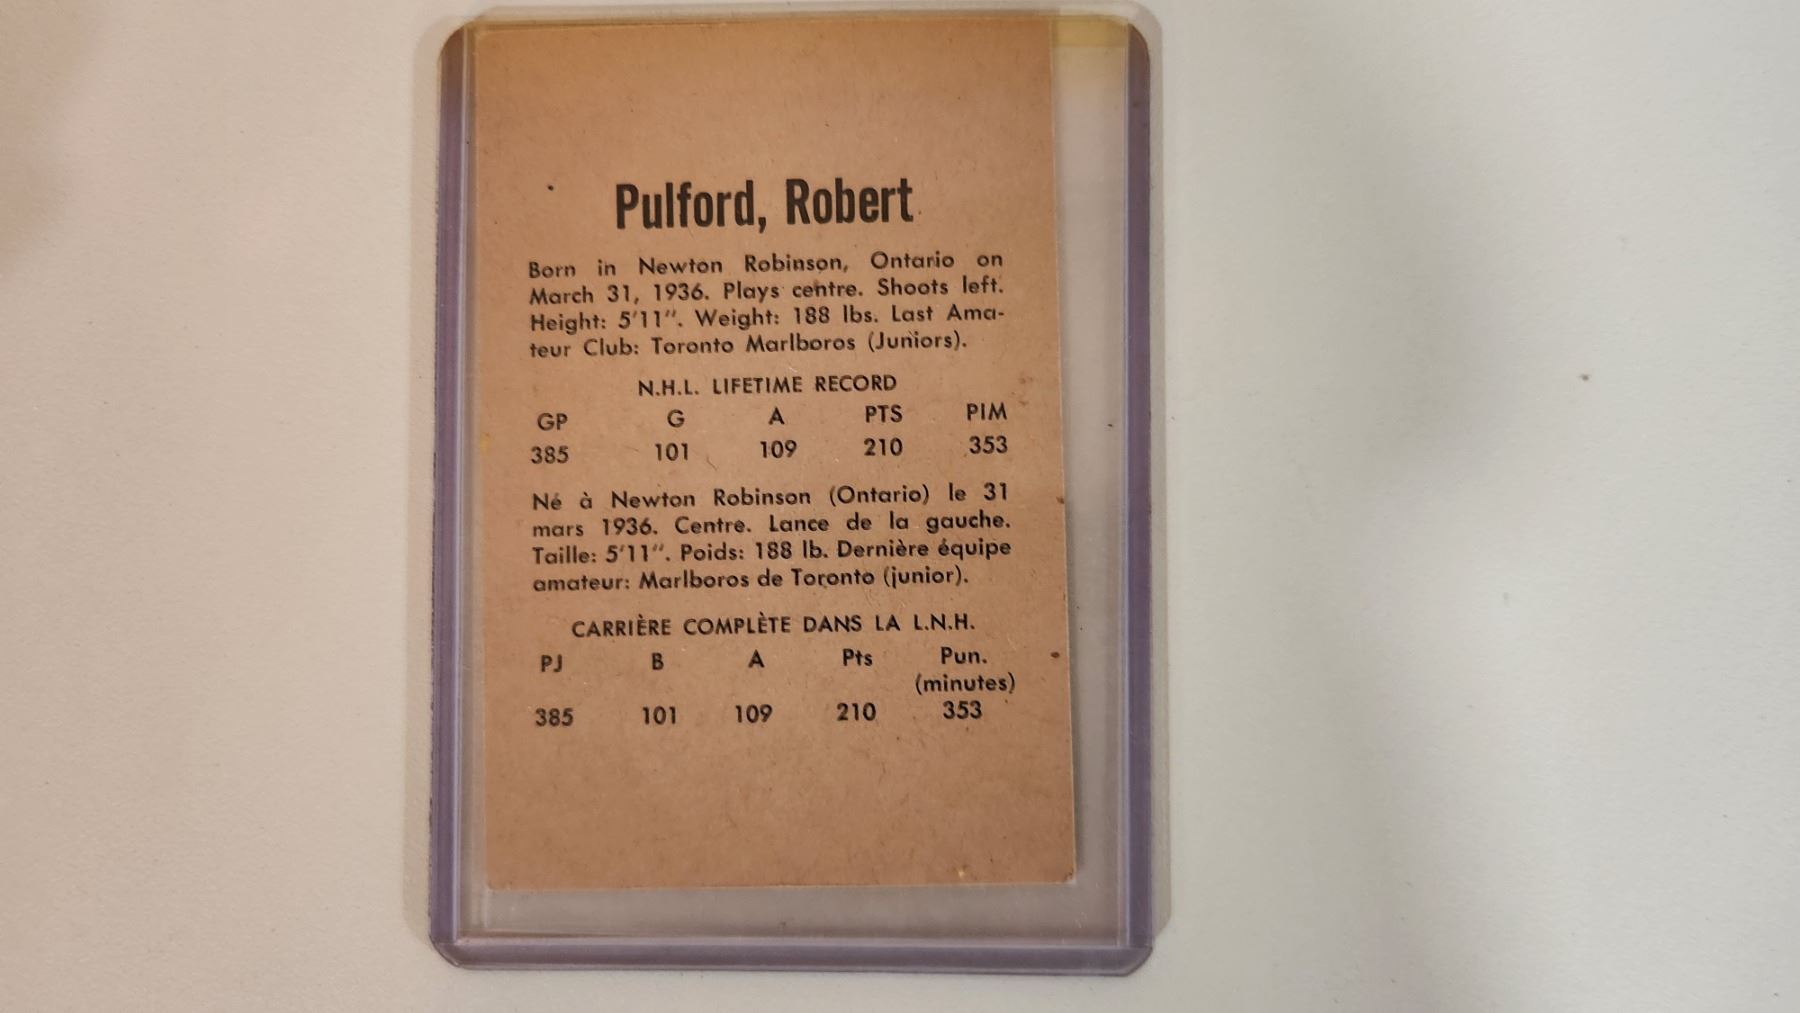 Pulford, Robert
Born in Newton Robinson, Ontario on
March 31, 1936. Plays centre. Shoots left.
Height: 5'11". Weight: 188 lbs. Last Ama-
teur Club: Toronto Marlboros (Juniors).
N.H.L. LIFETIME RECORD
GP G A PTS PIM
385 101 109 210 353
Né à Newton Robinson (Ontario) le 31
mars 1936. Centre. Lance de la gauche.
Taille: 5'11". Poids: 188 lb. Dernière équipe
amateur: Marlboros de Toronto (junior).
CARRIÈRE COMPLÈTE DANS LA L.N.H.
PJ B A Pts Pun.
(minutes)
385 101 109 210 353